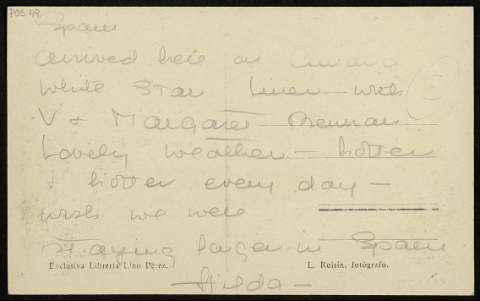 POS 49
Spain
arrived here on
White Star Liner – with
V & Margaret
Lovely weather – hotter
& hotter every day –
wish we were
staying longer in Spain
Exclusiva Librería Lino Pérez.
L. Roisin, fotógrafo.
– Hilda –